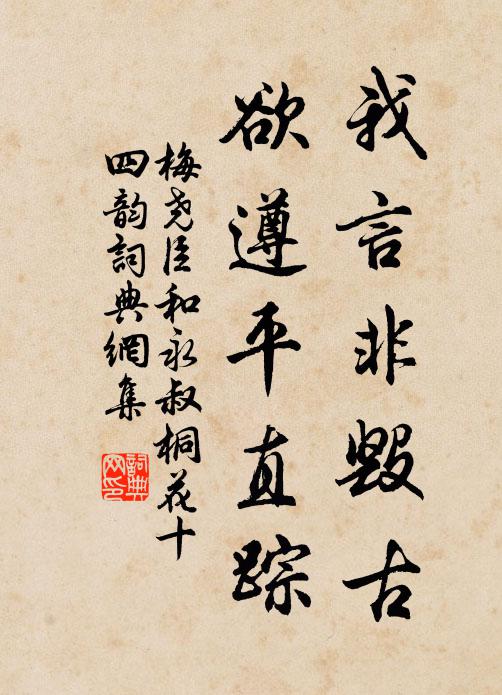 我言非毁古
欲遵平直踪
梅尧臣和永叔桐花十
四韵詞典網集
詞典
网印